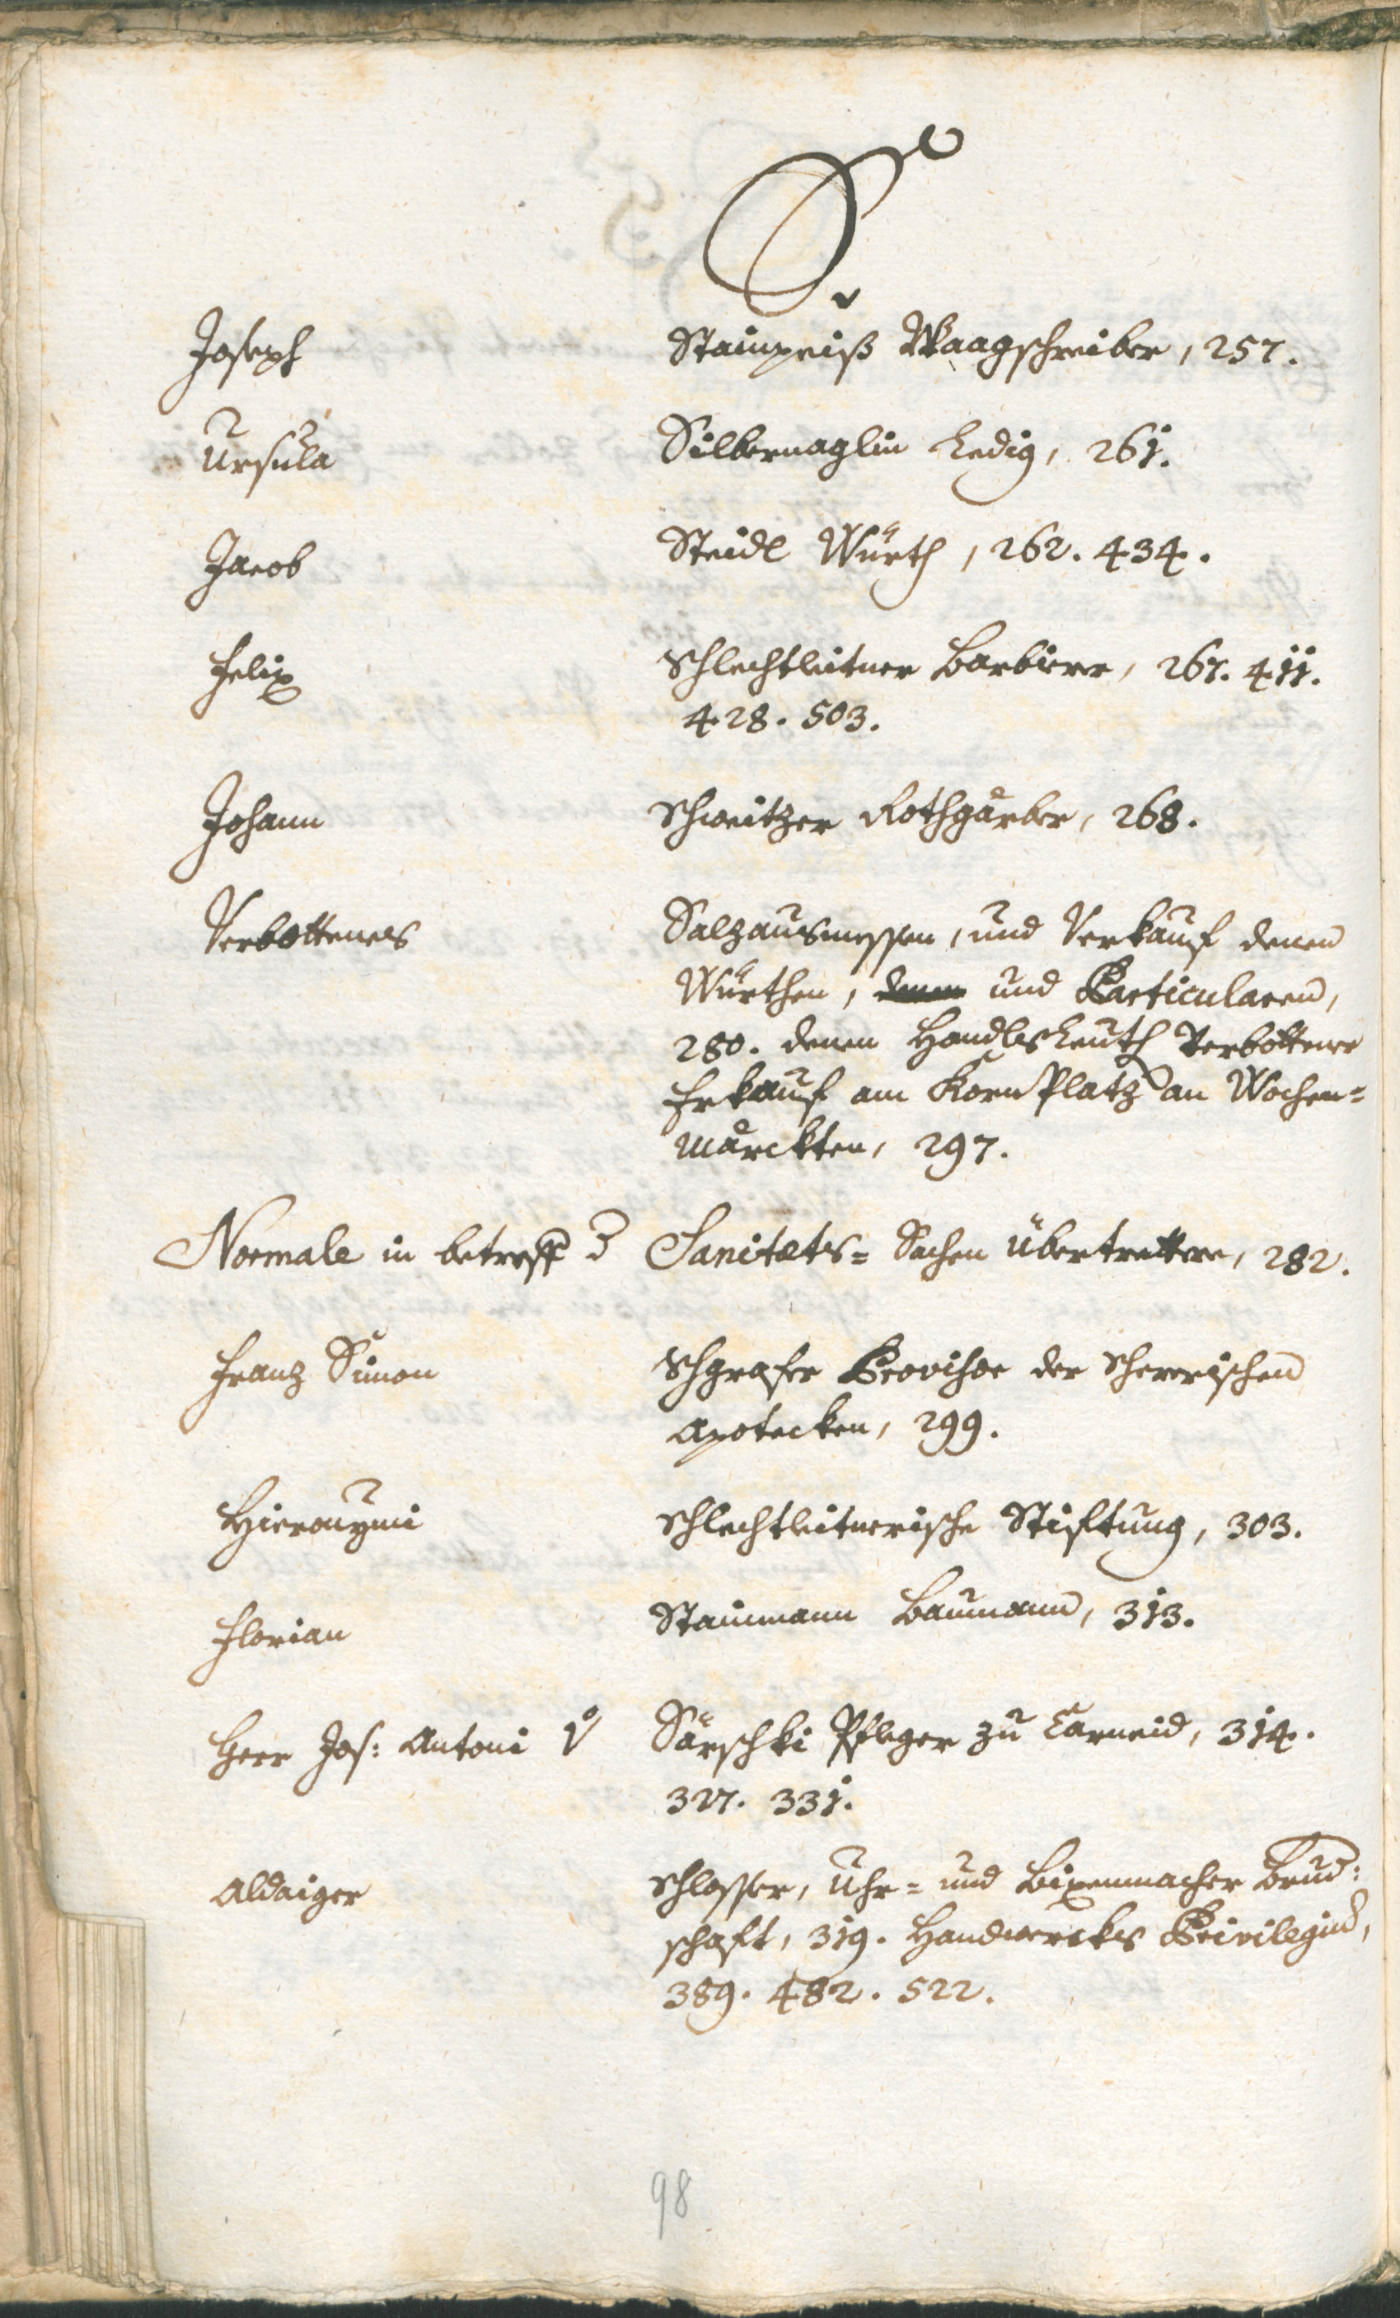 S.
Joseph Stainpeiß Waagschreiber, 257.
Ursula Silbernaglin Ledig, 261.
Jacob Steidl Würth, 262. 434.
Felix Schlechtleitner Barbierer, 267. 411.
428. 503.
Johann Schweitzer Rothgärber, 268.
Verbottenes Salzausmessen, und Verkauf denen
Würthen, denen und Particularen,
280. denen Handlsleuth Verbottener
Erkauf am Korn Platz an Wochen=
märckten, 297.
Normale in betreff d Sanitæts= Sachen übertrettere, 282.
Franz Simon Schgrafer Provisor der Schererischen
Apotecken, 299.
Hieronymi Schlechtleitnerische Stiftung, 303.
Florian Stainmann Baumann, 313.
Herr Jos: Antoni v Särschki Pfleger zu Carneid, 314.
327. 331.
Aldaiger Schlosser, Uhr= und Bixenmacher Brud:
schaft, 319. Handwercks Privilegiu,
389. 482. 522.
98